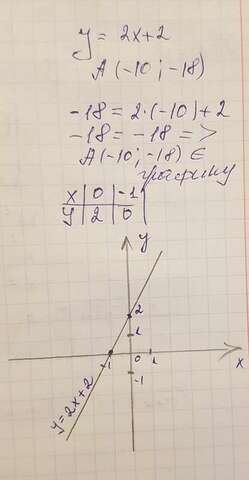 y = 2x+2
A (-10 ; -18)
-18 = 2·(-10)+2
-18 = -18 =>
A(-10; -18) ∈
графику
x | 0 | -1
y | 2 | 0
y
2
1
-1 0 1 x
-1
y=2x+2